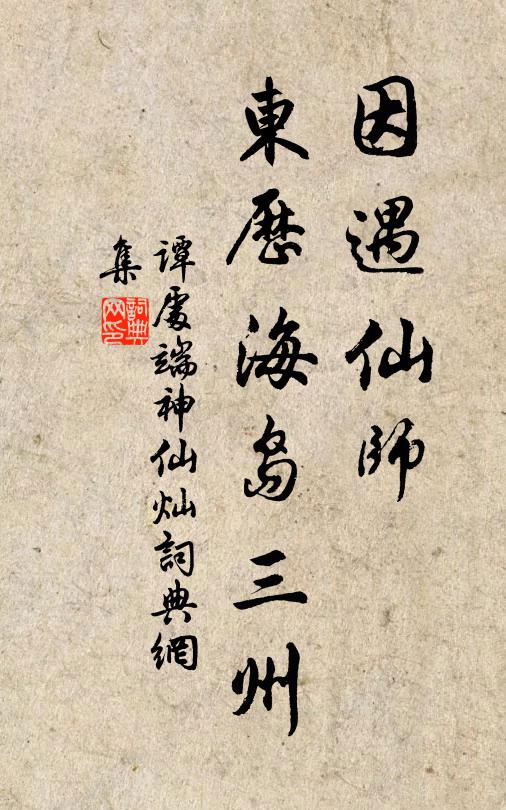 因遇仙師
東歷海島三州
譚處端神仙灿詞典網
集
詞典網印